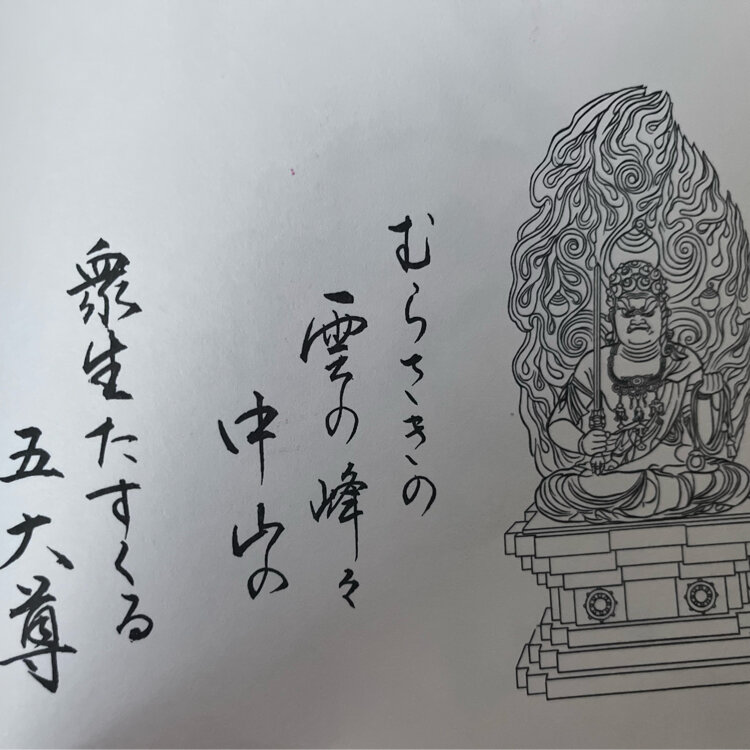 むらさきの
雲の峰々
中山の
衆生たすくる
五大尊